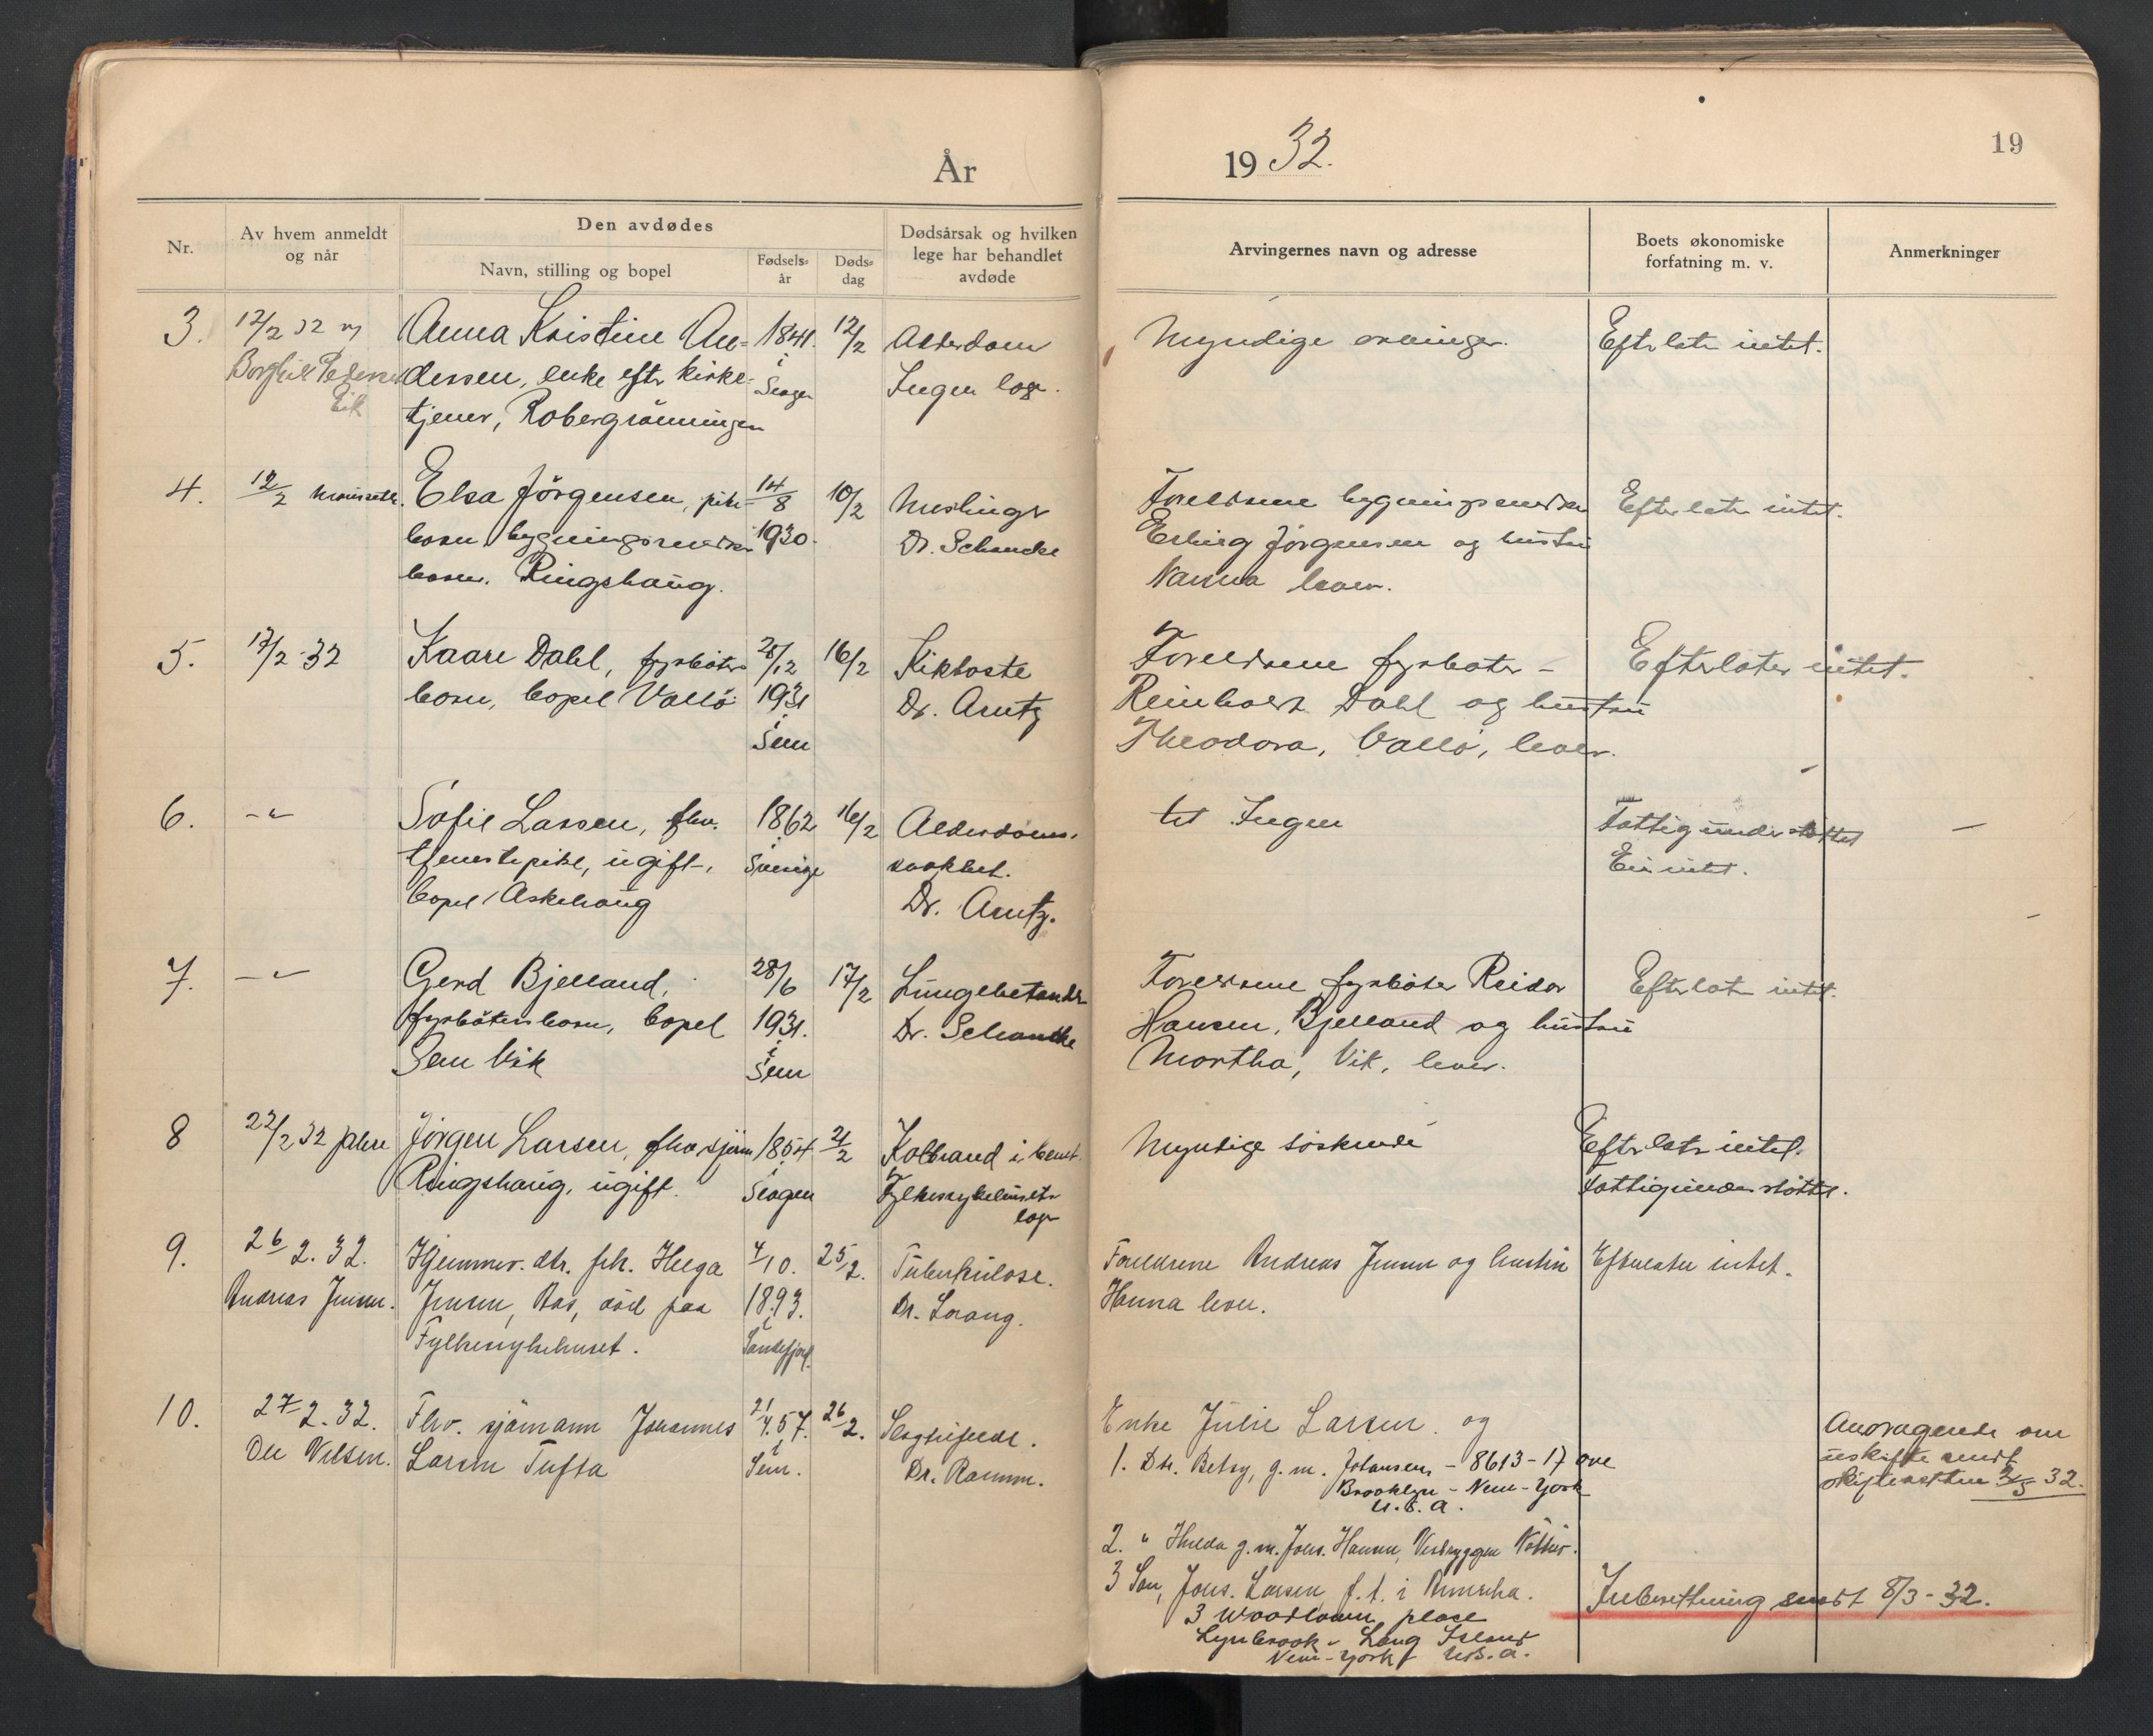 År
19 32.
19
Nr.
Av hvem anmeldt
og når
Den avdødes
Navn, stilling og bopel
Fødsels-
år
Døds-
dag
Dødsårsak og hvilken
lege har behandlet
avdøde
Arvingernes navn og adresse
Boets økonomiske
forfatning m. v.
Anmerkninger
3.
12/2 32 av
Eik
Anna Kristine An-
dersen, enke efter kirke-
tjener, Robergrönningen
1841.
i
Slagen
12/2
Alderdom
Ingen læge.
Myndige arvinger.
Efterlater intet.
4.
12/2
Elsa Jörgensen, pike-
barn, bygningssnekker
barn. Ringshaug.
14/8
1930.
10/2
Meslinger
Dr. Schancke
Foreldrene bygningssnekker
Erling Jörgensen og hustru
Nanna lever.
Efterlater intet.
5.
17/2-32
Kaare Dahl, fyrböter-
barn, bopel Vallö
28/12
1931
i
Sem
16/2
Kikhoste
Dr. Arntz
Foreldrene fyrböter-
Reinholdt Dahl og hustru
Theodora, Vallö, lever.
Efterlater intet.
6.
- " -
Sofie Larsen, fhv.
tjenestepike, ugift,
bopel Askehaug
1862
i
Sverige
16/2
Alderdoms-
svakhet.
Dr. Arntz.
Ingen
Fattigunderstöttet
Eier intet.
7.
- " -
Gerd Bjelland,
fyrböterbarn, bopel
Sem Vik
28/6
1931.
i
Sem
17/2
Lungebetændelse
Dr. Schancke
Foreldrene fyrböter Reidar
Hansen, Bjelland og hustru
Martha, Vik, lever.
Efterlater intet.
8
22/2 32
Jörgen Larsen, fhv sjöm
Ringshaug, ugift.
1854
i
Slagen
21/2
Kolbrand i benet.
Fylkessykehusets
læge
Myndige söskende
Efterlater intet.
Fattigunderstöttet.
9.
26/2. 32.
Andreas Jensen.
Hjemmev. dtr. frk. Helga
Jensen, Bas, död paa
Fylkessykehuset.
4/10.
1893.
i
Sandefjord.
25/2.
Tuberkulose.
Dr. Lorang.
Foreldrene Andreas Jensen og hustru
Hanna lever.
Efterlater intet.
10.
27/2. 32.
Ole Nilsen.
Fhv. sjömann Johannes
Larsen Tufta
21/4. 57.
i
Sem.
26/2.
Slagtilfelde.
Dr. Ramm.
Enke Julie Larsen og
1. Dtr. Betsy, g. m. Johansen, - 8613-17 ave
Brooklyn - New-York
U.S.A.
2. " Hulda g. m. Johs. Hansen, Vestbryggen Nötter.
3 Sön, Johs. Larsen, f. t. i Amerika.
3 Woodlawn place
Lynbrook - Long Island
New-York U.S.A.
Andragende om
uskifte sendt
skifteretten 3/3 32.
Innberetning sendt 8/3-32.